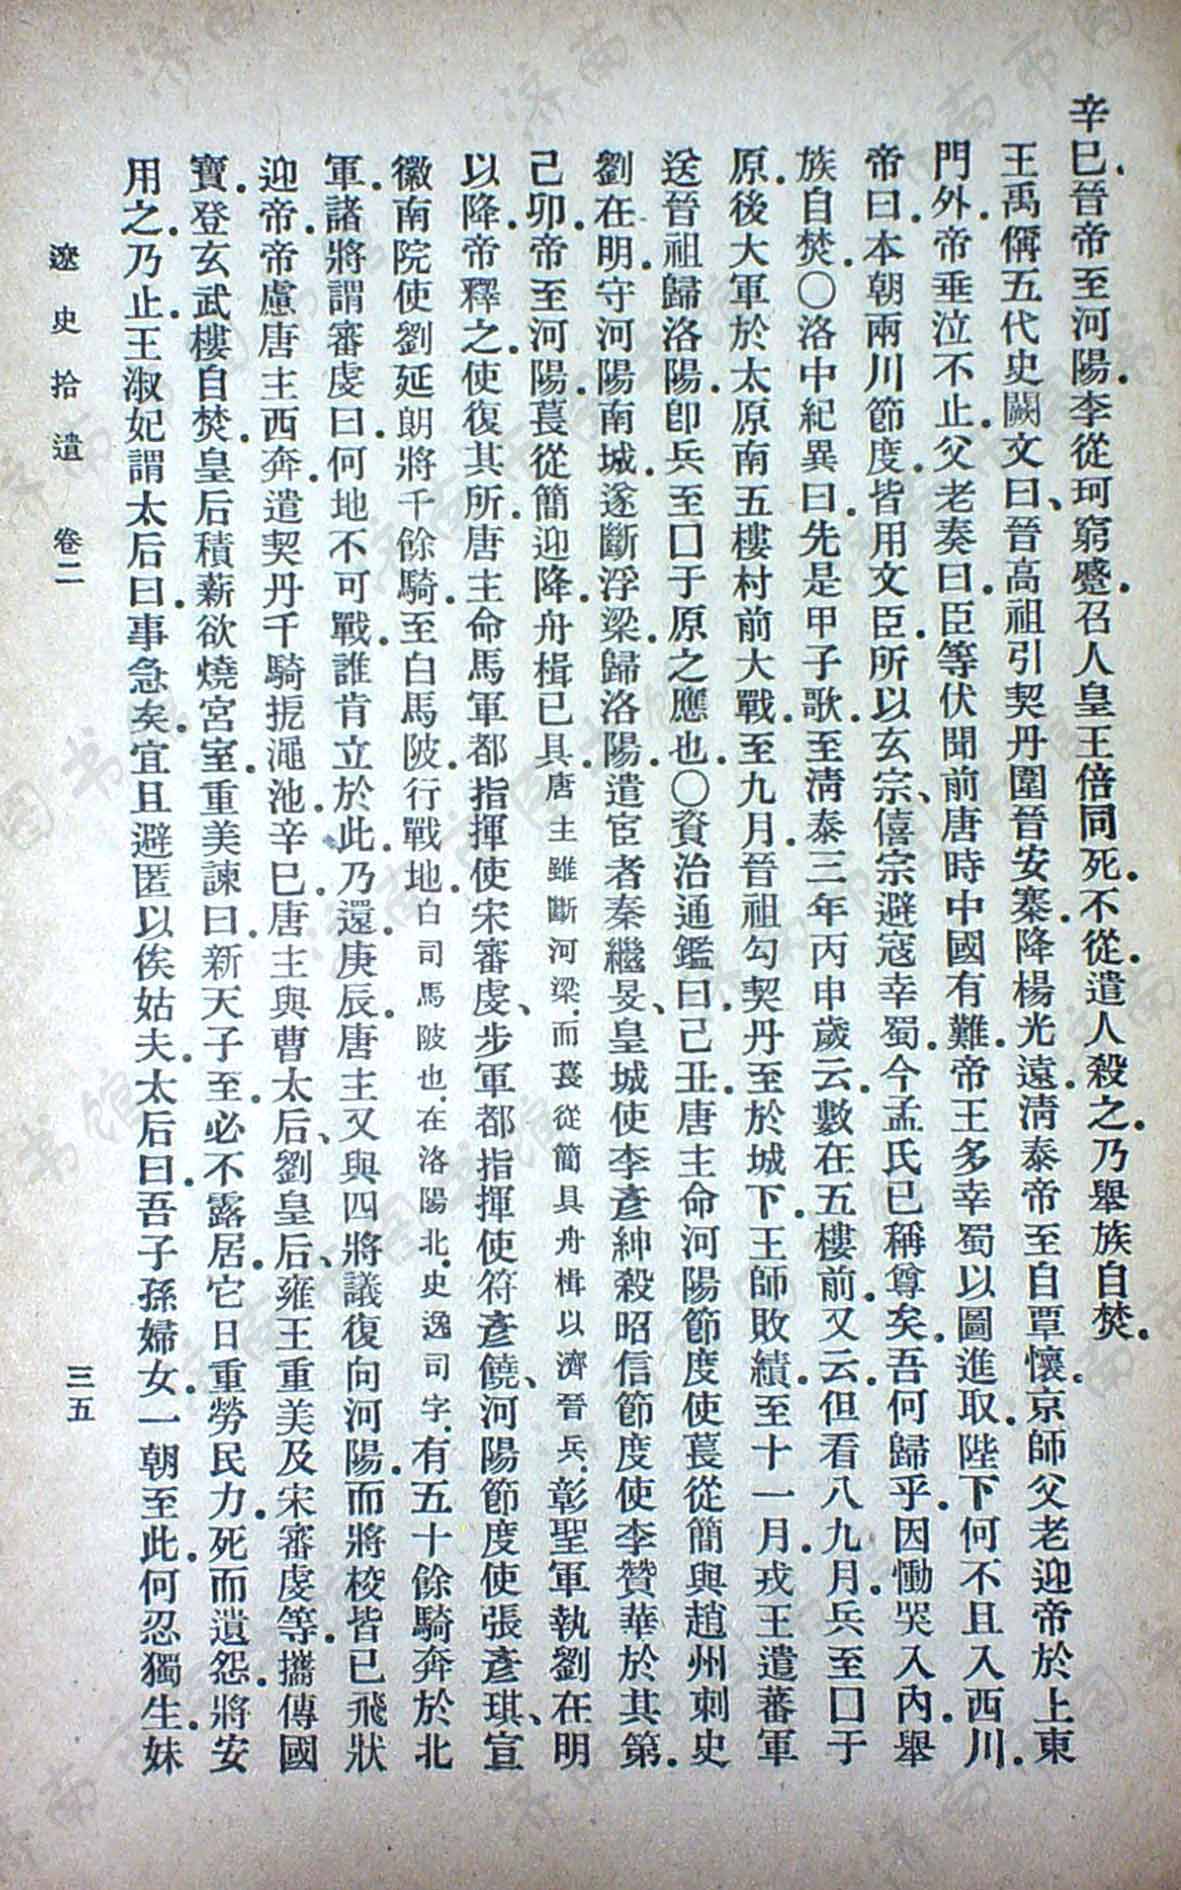 辛巳、晉帝至河陽。李從珂窮蹙。召人皇王倍同死。不從。遣人殺之。乃舉族自焚。
王禹偁五代史闕文曰、晉高祖引契丹圍晉安寨。降楊光遠。淸泰帝至自覃懷。京師父老迎帝於上東
門外。帝垂泣不止。父老奏曰。臣等伏聞前唐時中國有難。帝王多幸蜀以圖進取。陛下何不且入西川。
帝曰。本朝兩川節度。皆用文臣。所以玄宗、僖宗避寇幸蜀。今孟氏已稱尊矣。吾何歸乎。因慟哭入內。舉
族自焚。○洛中紀異曰。先是甲子歌。至淸泰三年丙申歲云。數在五樓前。又云。但看八九月。兵至囗于
原。後大軍於太原南五樓村前大戰。至九月。晉祖勾契丹至於城下。王師敗績。至十一月。戎王遣蕃軍
送晉祖歸洛陽。卽兵至囗于原之應也。○資治通鑑曰。己丑。唐主命河陽節度使萇從簡與趙州刺史
劉在明。守河陽南城。遂斷浮梁。歸洛陽。遣宦者秦繼旻、皇城使李彥紳殺昭信節度使李贊華於其第。
己卯。帝至河陽。萇從簡迎降。舟楫已具。唐主雖斷河梁。而萇從簡具舟楫以濟晉兵。彰聖軍執劉在明
以降。帝釋之。使復其所。唐主命馬軍都指揮使宋審虔、步軍都指揮使符彥饒、河陽節度使張彥琪、宣
徽南院使劉延朗將千餘騎。至白馬陂。行戰地。白司馬陂也。在洛陽北。史逸司字。有五十餘騎奔於北
軍。諸將謂審虔曰。何地不可戰。誰肯立於此。乃還。庚辰。唐主又與四將議復向河陽。而將校皆已飛狀
迎帝。帝慮唐主西奔。遣契丹千騎扼澠池。辛巳。唐主與曹太后、劉皇后、雍王重美及宋審虔等。攜傳國
寶。登玄武樓自焚。皇后積薪欲燒宮室。重美諫曰。新天子至。必不露居。它日重勞民力。死而遺怨。將安
用之。乃止。王淑妃謂太后曰。事急矣。宜且避匿以俟姑夫。太后曰。吾子孫婦女。一朝至此。何忍獨生。妹
遼史拾遺 卷二
三五